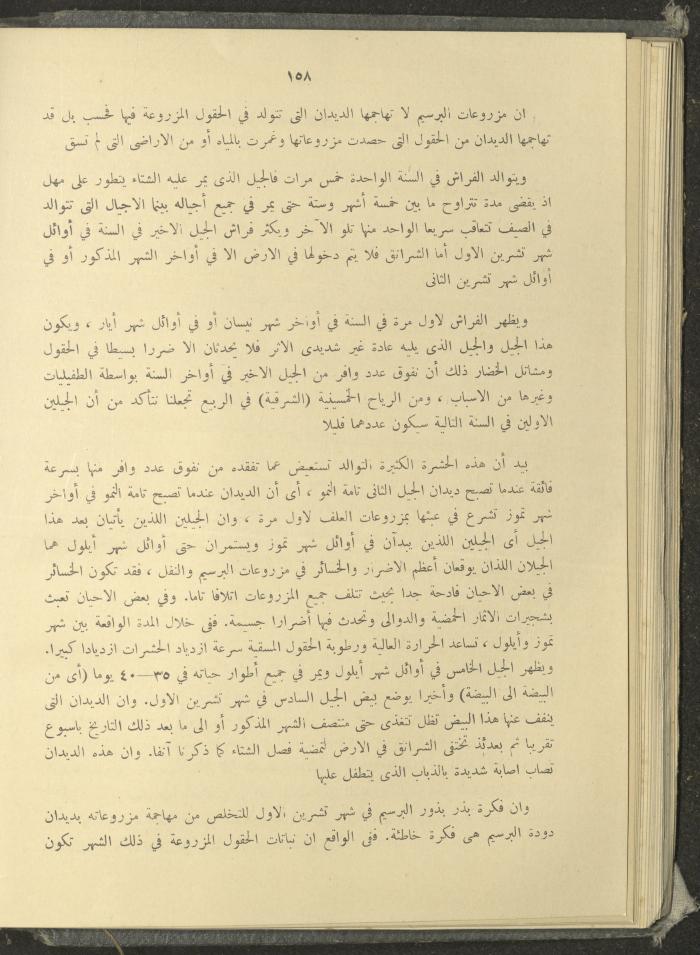 ١٥٨
ان مزروعات البرسيم لا تهاجمها الديدان التى تتولد فى الحقول المزروعة فيها فحسب بل قد
تهاجمها الديدان من الحقول التى حصدت مزروعاتها وغمرت بالمياه أو من الاراضى التى لم تسق
ويتوالد الفراش فى السنة الواحدة خمس مرات فالجيل الذى يمر عليه الشتاء يتطور على مهل
اذ يقضى مدة تتراوح ما بين خمسة أشهر وستة حتى يمر فى جميع أجياله بينما الاجيال التى تتوالد
فى الصيف تتعاقب سريعا الواحد منها تلو الآخر ويكثر فراش الجيل الاخير فى السنة فى أوائل
شهر تشرين الاول أما الشرانق فلا يتم دخولها فى الارض الا فى أواخر الشهر المذكور أو فى
أوائل شهر تشرين الثانى
ويظهر الفراش لاول مرة فى السنة فى أواخر شهر نيسان أو فى أوائل شهر أيار ، ويكون
هذا الجيل والجيل الذى يليه عادة غير شديدى الاثر فلا يحدثان الا ضررا بسيطا فى الحقول
ومشاتل الخضار ذلك أن نفوق عدد وافر من الجيل الاخير فى أواخر السنة بواسطة الطفيليات
وغيرها من الاسباب ، ومن الرياح الخمسينية (الشرقية) فى الربيع تجعلنا نتأكد من أن الجيلين
الاولين فى السنة التالية سيكون عددهما قليلا
بيد أن هذه الحشرة الكثيرة التوالد تستعيض عما تفقده من نفوق عدد وافر منها بسرعة
فائقة عندما تصبح ديدان الجيل الثانى تامة النمو ، أى أن الديدان عندما تصبح تامة النمو فى أواخر
شهر تموز تشرع فى عبثها بمزروعات العلف لاول مرة ، وان الجيلين اللذين يأتيان بعد هذا
الجيل أى الجيلين اللذين يبدآن فى أوائل شهر تموز ويستمران حتى أوائل شهر أيلول هما
الجيلان اللذان يوقعان أعظم الاضرار والخسائر فى مزروعات البرسيم والنفل ، فقد تكون الخسائر
فى بعض الاحيان فادحة جدا بحيث تتلف جميع المزروعات اتلافا تاما. وفى بعض الاحيان تعبث
بشجيرات الاثمار الحمضية والدوالى وتحدث فيها أضرارا جسيمة. ففى خلال المدة الواقعة بين شهر
تموز وأيلول ، تساعد الحرارة العالية ورطوبة الحقول المسقية سرعة ازدياد الحشرات ازديادا كبيرا.
ويظهر الجيل الخامس فى أوائل شهر أيلول ويمر فى جميع أطوار حياته فى ٣٥—٤٠ يوما (أى من
البيضة الى البيضة) وأخيرا يوضع بيض الجيل السادس فى شهر تشرين الاول. وان الديدان التى
ينقف عنها هذا البيض تظل تتغذى حتى منتصف الشهر المذكور أو الى ما بعد ذلك التاريخ باسبوع
تقريبا ثم بعدئذ تختفى الشرانق فى الارض لتمضية فصل الشتاء كما ذكرنا آنفا. وان هذه الديدان
تصاب اصابة شديدة بالذباب الذى يتطفل عليها
وان فكرة بذر بذور البرسيم فى شهر تشرين الاول للتخلص من مهاجمة مزروعاته بديدان
دودة البرسيم هى فكرة خاطئة. ففى الواقع ان نباتات الحقول المزروعة فى ذلك الشهر تكون